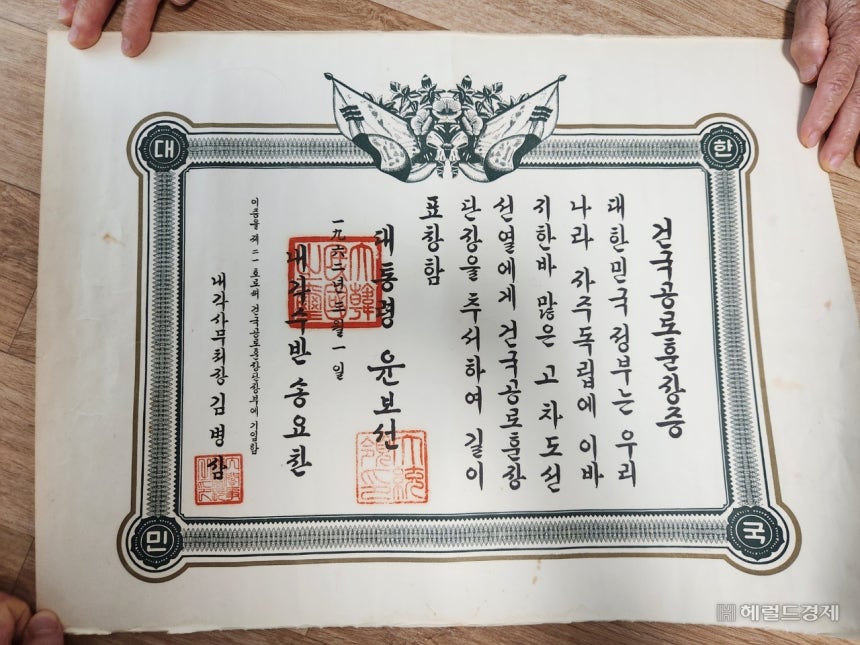 대
한
민
국
건국공로훈장증
대한민국 정부는 우리
나라 자주독립에 이바
지한바 많은 고 차도선
선열에게 건국공로훈장
단장을 추서하여 길이
표창함
대통령 윤보선
大統領印
一九六二년 三월 一일
大韓民國之璽
내각수반 송요찬
이증을 제 二一 호로써 건국공로훈장단장부에 기입함
내각사무처장 김병삼
헤럴드경제